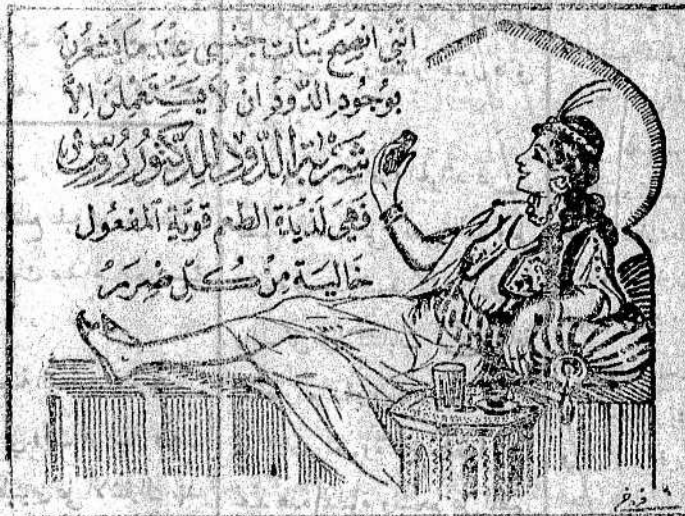 انني انصح بنات جنسي عندما يشعرن
بوجود الدود ان لا يستعملن الا
شربة الدود للدكتور روس
فهي لذيذة الطعم قوية المفعول
خالية من كل ضرر
فروخ